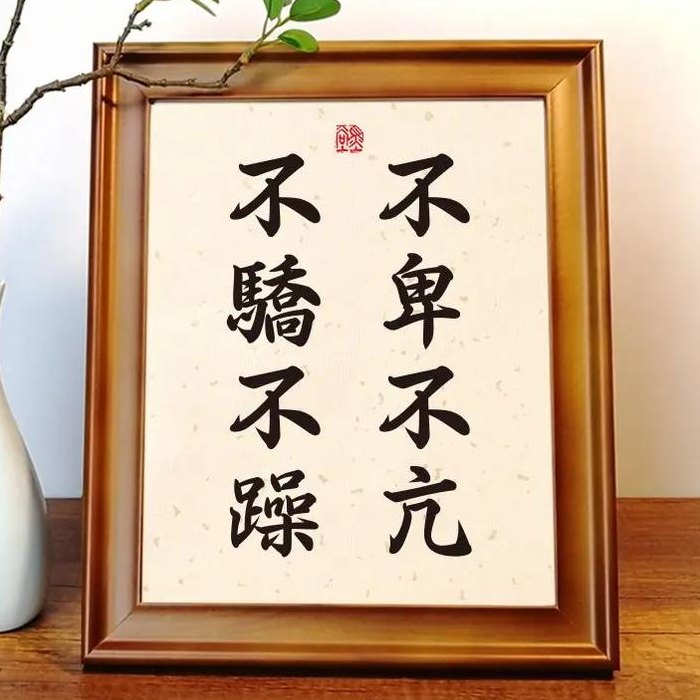 不卑不亢
不驕不躁